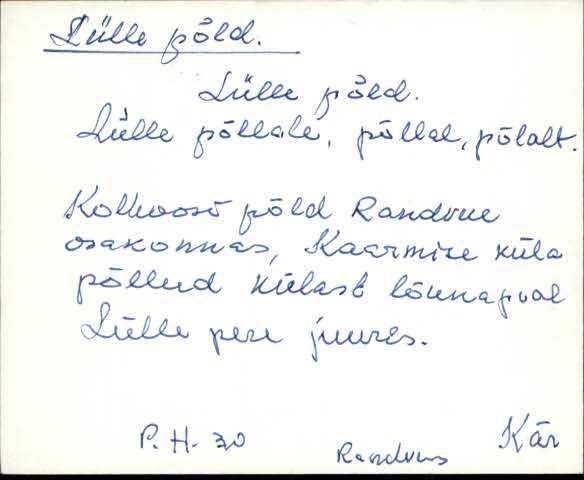 Lülle põld.
Lülle põld.
Lülle põllale, põllal, põlalt.
Kolhoosi põld Randvere
osakonnas, Kaarmise küla
põllud külast lõunapool
Lülle pere juures.
P. H. 70
Kär
Randvere